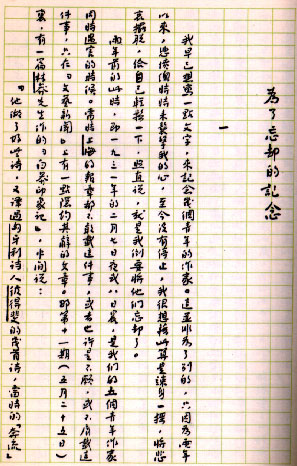 為了忘却的記念
一
我早已想寫一點文字，來記念幾個青年的作家。這並非為了別的，只因為兩年
以來，悲憤總時時來襲擊我的心，至今沒有停止，我很想借此算是竦身一搖，將悲
哀擺脫，給自己輕鬆一下，照直說，就是我倒要將他們忘却了。
兩年前的此時，即一九三一年的二月七日夜或八日晨，是我們的五個青年作家
同時遇害的時候。當時上海的報章都不敢載這件事，或者也許是不願，或不屑載這
件事，只在『文藝新聞』上有一點隱約其辭的文章。那第十一期（五月二十五日）
裏，有一篇林莽先生作的『白莽印象記』，中間說：
「他做了好些詩，又譯過匈牙利詩人彼得斐的幾首詩，當時的『奔流』